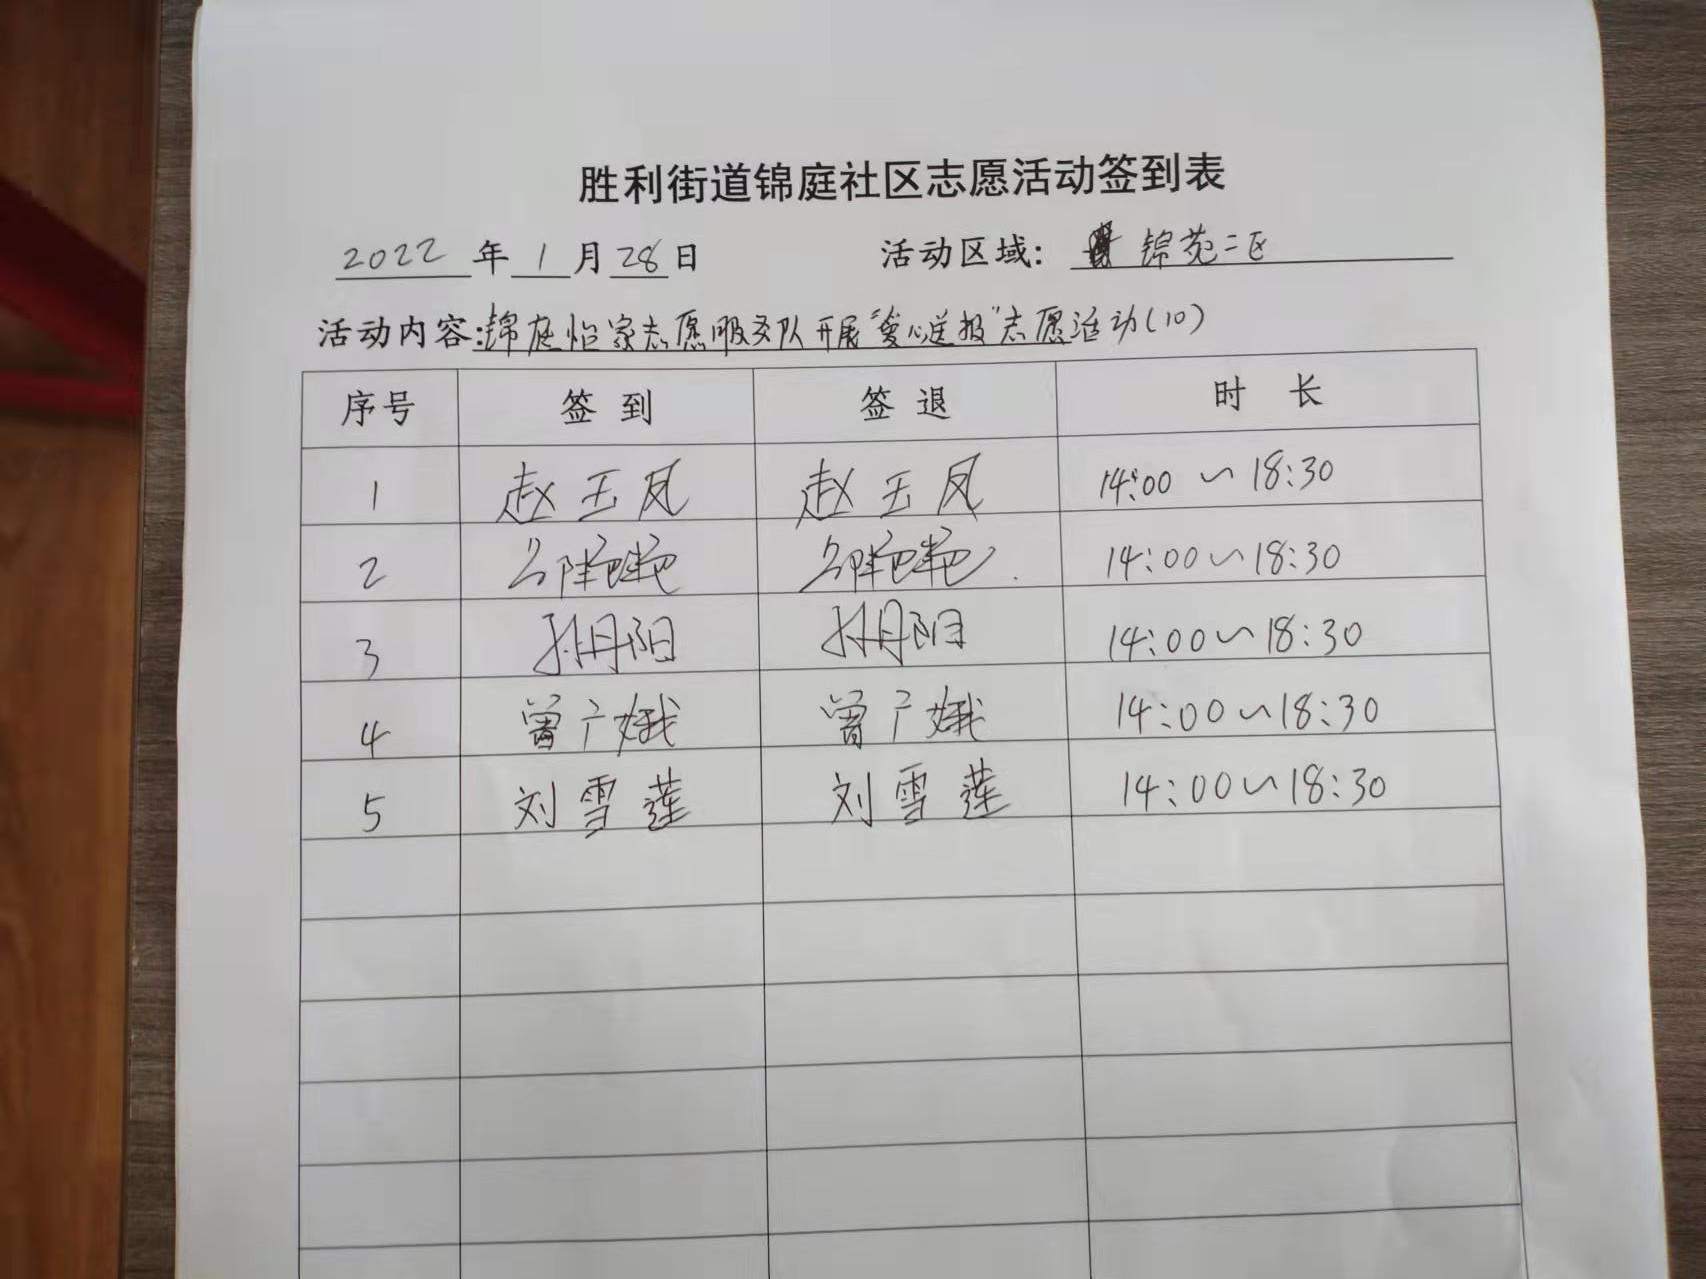 胜利街道锦庭社区志愿活动签到表
2022年1月28日 活动区域: 锦苑二区
活动内容:锦庭怡家志愿服务队开展“爱心送报”志愿活动(10)
序号 签到 签退 时长
1 赵玉凤 赵玉凤 14:00~18:30
2 邹艳艳 邹艳艳 14:00~18:30
3 孙丹阳 孙丹阳 14:00~18:30
4 曾广娥 曾广娥 14:00~18:30
5 刘雪莲 刘雪莲 14:00~18:30